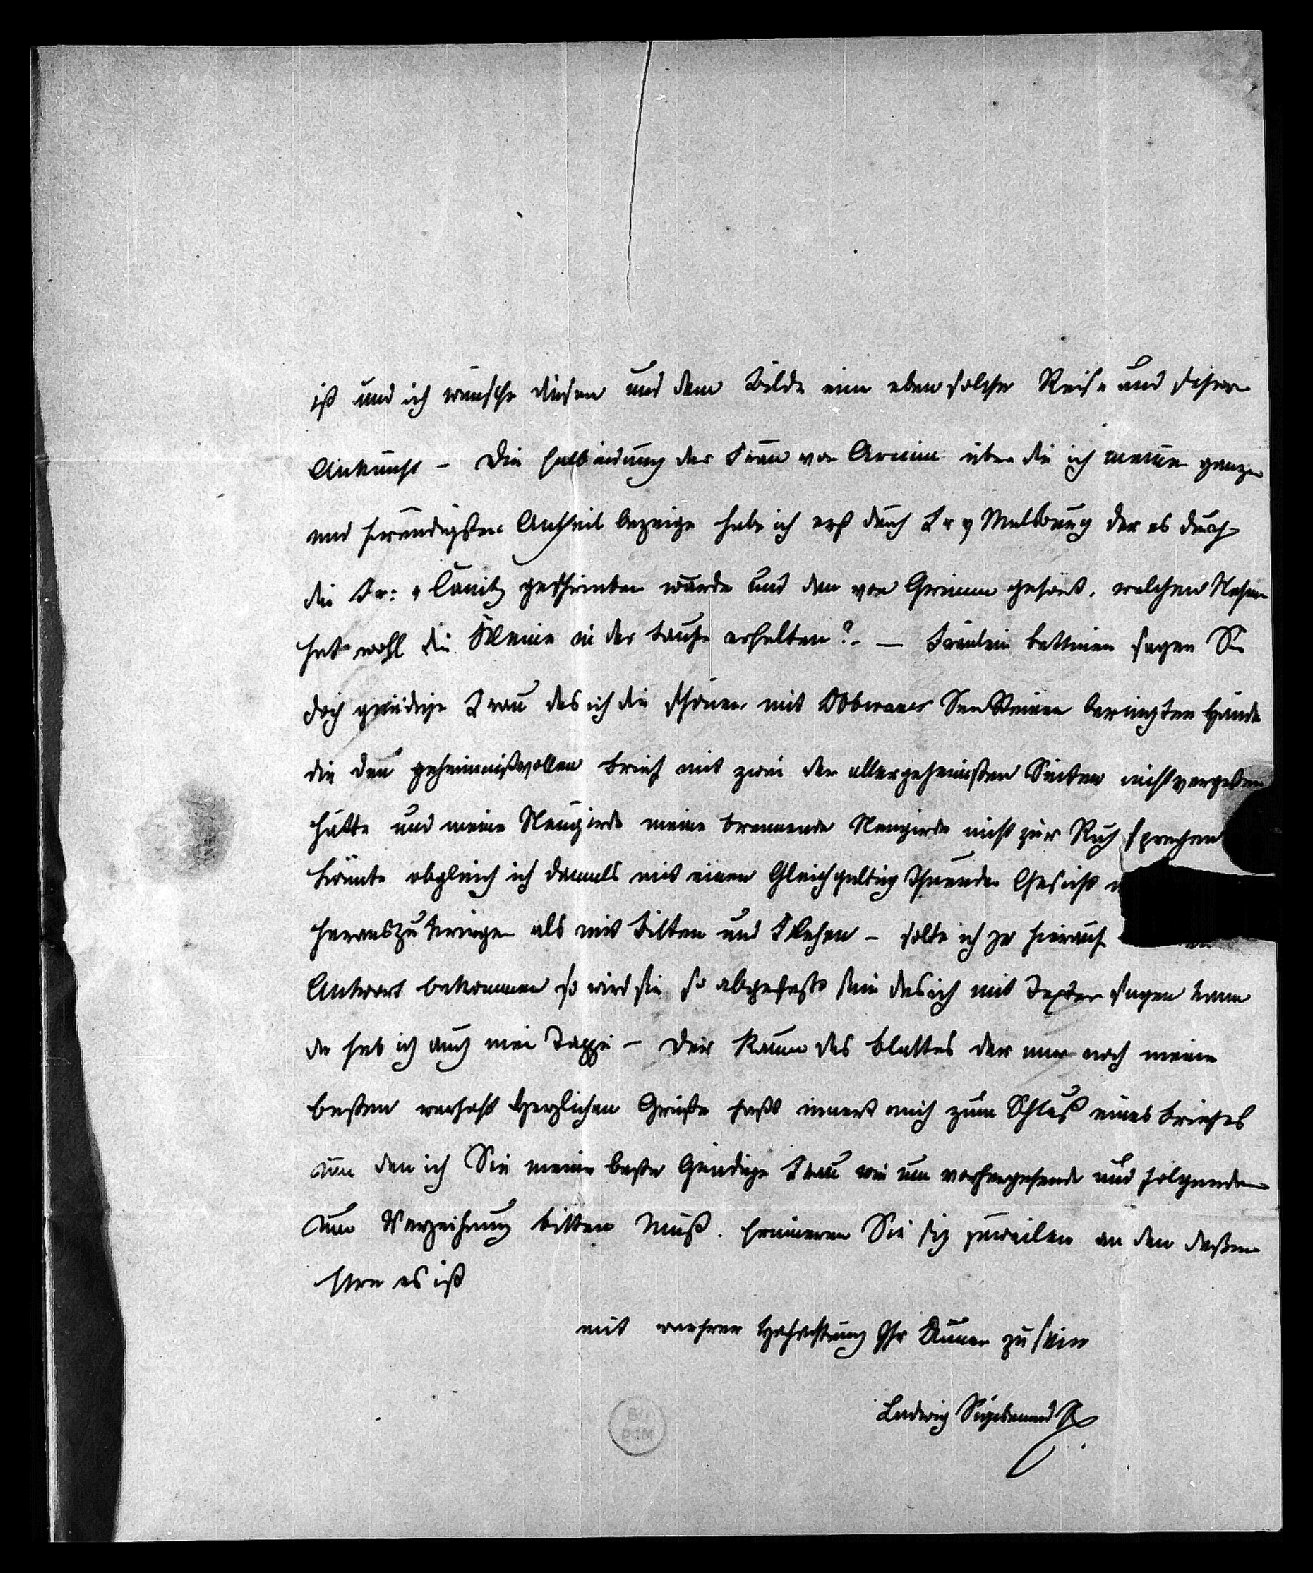 ist und ich wünsche diesen und dem Bilde eine eben solche Reise und schöne
Ankunft – Die Entbindung der Frau von Arnim über die ich meine ganze
und freudigsten Antheil bezeige habe ich erst durch Hr v Malsburg der es durch
die Fr: v Canitz geschrieben wurde und dan von Grimm gehört. welchen Nahmen
hat wohl die Kleine in der Taufe erhalten? – Fräulein Bettinen sagen Sie
doch gnädige Frau das ich die schönen mit beringten Hände
die den geheimnißvollen Brief mit zwei der allergeheimsten Seiten nicht vergessen
hätte und meine Neugierde meine brennende Neugierde nicht zur Ruh sprechen
könnte obgleich ich damals mit einen Gleichgültig Gesicht
herauszubringen als mit Bitten und Flehen – solte ich ja hierauf
Antwort bekommen so wird sie so abgefast sein das ich mit sagen kann
da hab ich auch mei – Der Raum des Blattes der nur noch meine
besten herzlichen Grüße fast innert mich zum Schluß eines Briefes
um den ich Sie meine beste Gnädige Frau wie um vorhergehende und folgenden
um Verzeihung bitten muß. Erinneren Sie sich zuweilen an den dessen
es ist
mit wahrer Hochachtung Ihr Diener zu sein
Ludwig Sigismund R